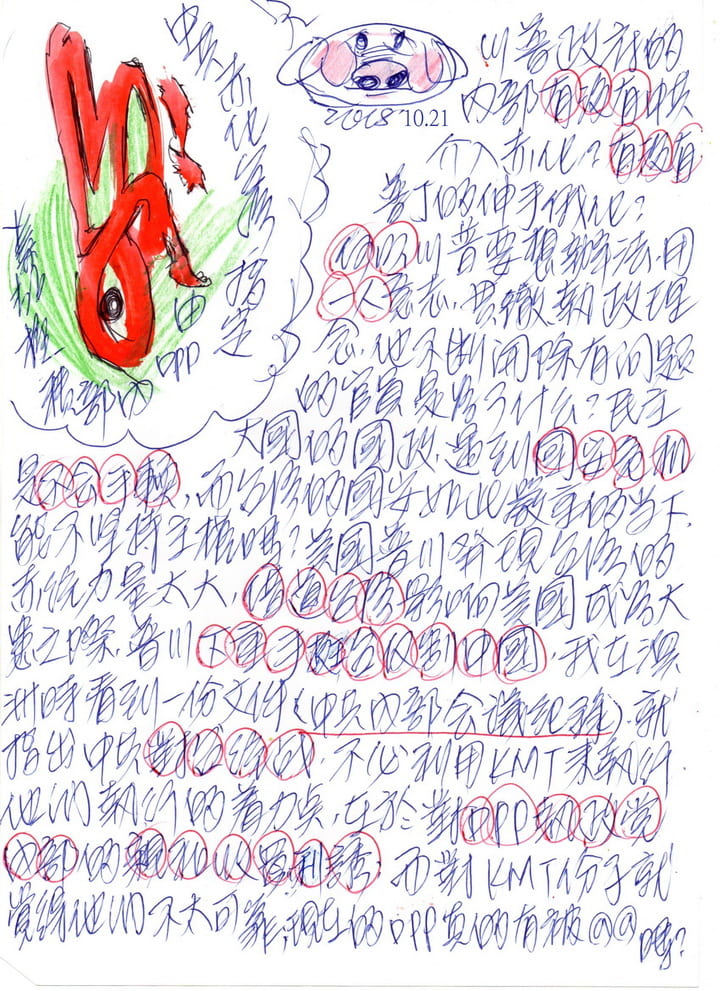 川普政府的
內部有沒有中共
2018 10.21
介入赤化?有沒有
普丁的伸手俄化?
所以川普要想辦法.用
一人意志.貫徹執政理
念.他不斷開除有問題
的官員是為了什么?民主
大國的國政.遇到國安危機
是不會手軟,而台灣的國安如此嚴重的當下,
能不堅持主權嗎?美國普川發現台灣的
赤統力量太大,借道台灣影响美國成為大
患之際.普川下重手 中國.我在澳
洲時看到一份文件(中共內部會議紀錄).就
指出中共 .不必利用KMT來執行
他们執行的着力点,在於對DPP執政党
內部的 以及利誘;而對KMT份子就
覺得他们不太可靠;現在的DPP真的有被@@
嗎?
中共赤化台灣指定
由DPP
內部